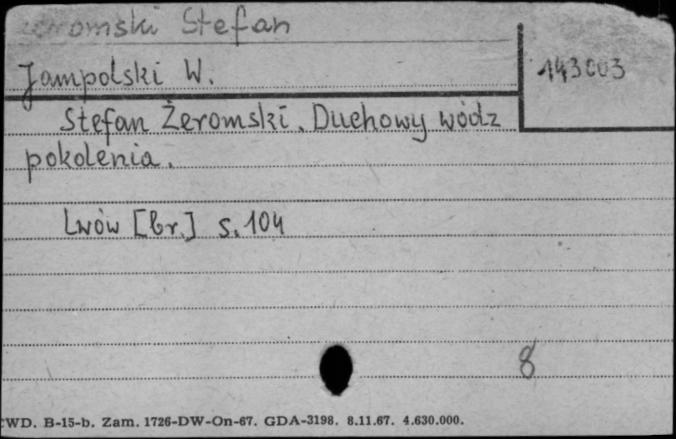 Stefan
143003
Jampolski W.
Stefan Żeromski. Duchowy wódz
pokolenia.
Lwów [br.] s. 104
8
CWD. B-15-b. Zam. 1726-DW-On-67. GDA-3198. 8.11.67. 4.630.000.